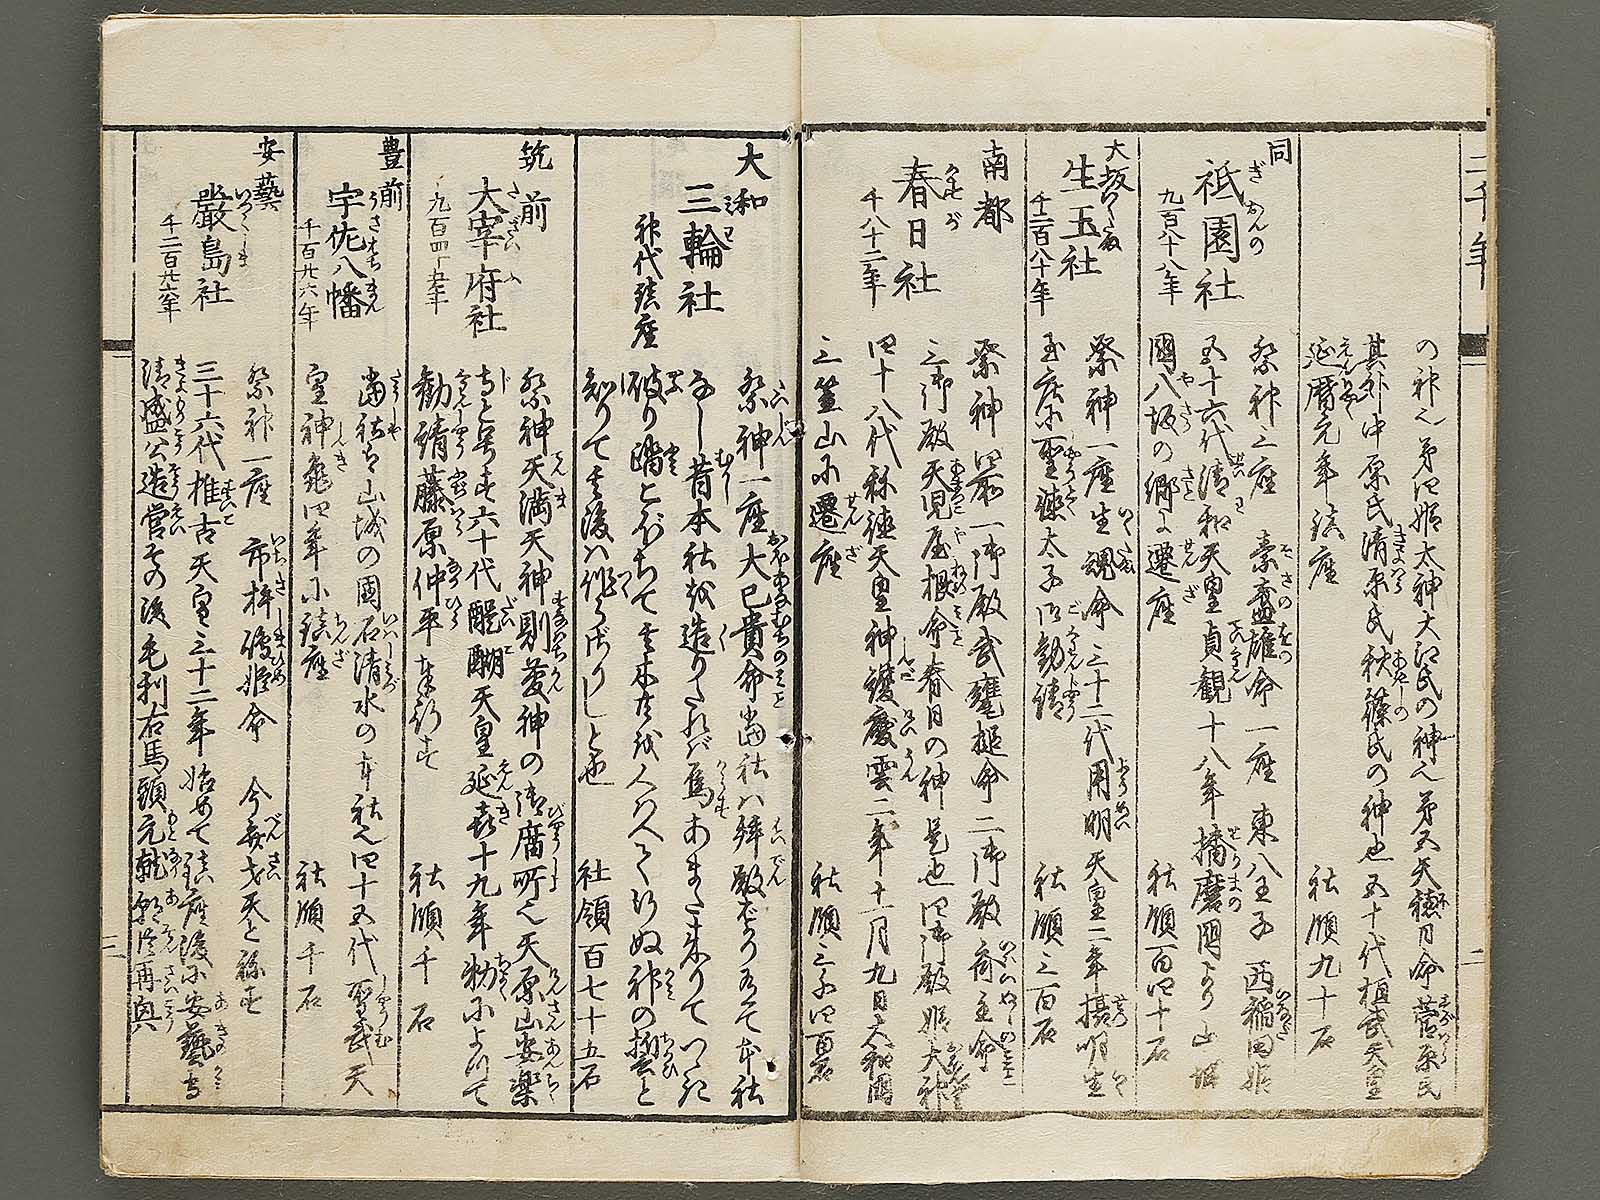 の神也 第四姫太神大江氏の神也 第五天穂日命菅原氏
其外中原氏清原氏秋篠氏の神也 五十代桓武天皇
延暦元年鎮座 社領九十石
同
祇園社
九百八十八年
祭神三座 素盞雄命一座 東八王子 西稲田姫
五十六代清和天皇貞観十八年播磨国より山城
国八坂の郷に遷座 社領百四十石
大坂
生玉社
千二百八十年
祭神一座生魂命 三十二代用明天皇二年摂州生
玉庄に聖徳太子御勧請 社領三百石
南都
春日社
千八十二年
祭神四座 一御殿武甕槌命 二御殿斎主命
三御殿天児屋根命春日の神是也 四御殿姫大神
四十八代称徳天皇神護慶雲二年十一月九日大和国
三笠山に遷座 社領三千四百石
大和
三輪社
神代鎮座
祭神一座大己貴命当社ハ拝殿ばかり有て本社
なし昔本社を造りたれバ烏あまた来りて
破り踏こぼちて
知りて其後ハ作らざりしと也 社領百七十五石
筑前
大宰府社
九百四十五年
祭神天満天神則菅神の御廟所也天原山安楽
寺と号す六十代醍醐天皇延喜十九年勅によつて
勧請藤原仲平奉行す 社領千石
豊前
宇佐八幡
千百廿六年
当社は山城の国石清水の本社也四十五代聖武天
皇神亀四年に鎮座 社領千石
安藝
嚴島社
千二百廿六年
祭神一座 市杵嶋姫命 今弁才天と称す
三十六代推古天皇三十二年始めて鎮座後に安藝守
清盛公造営その後毛利右馬頭元就朝臣再興